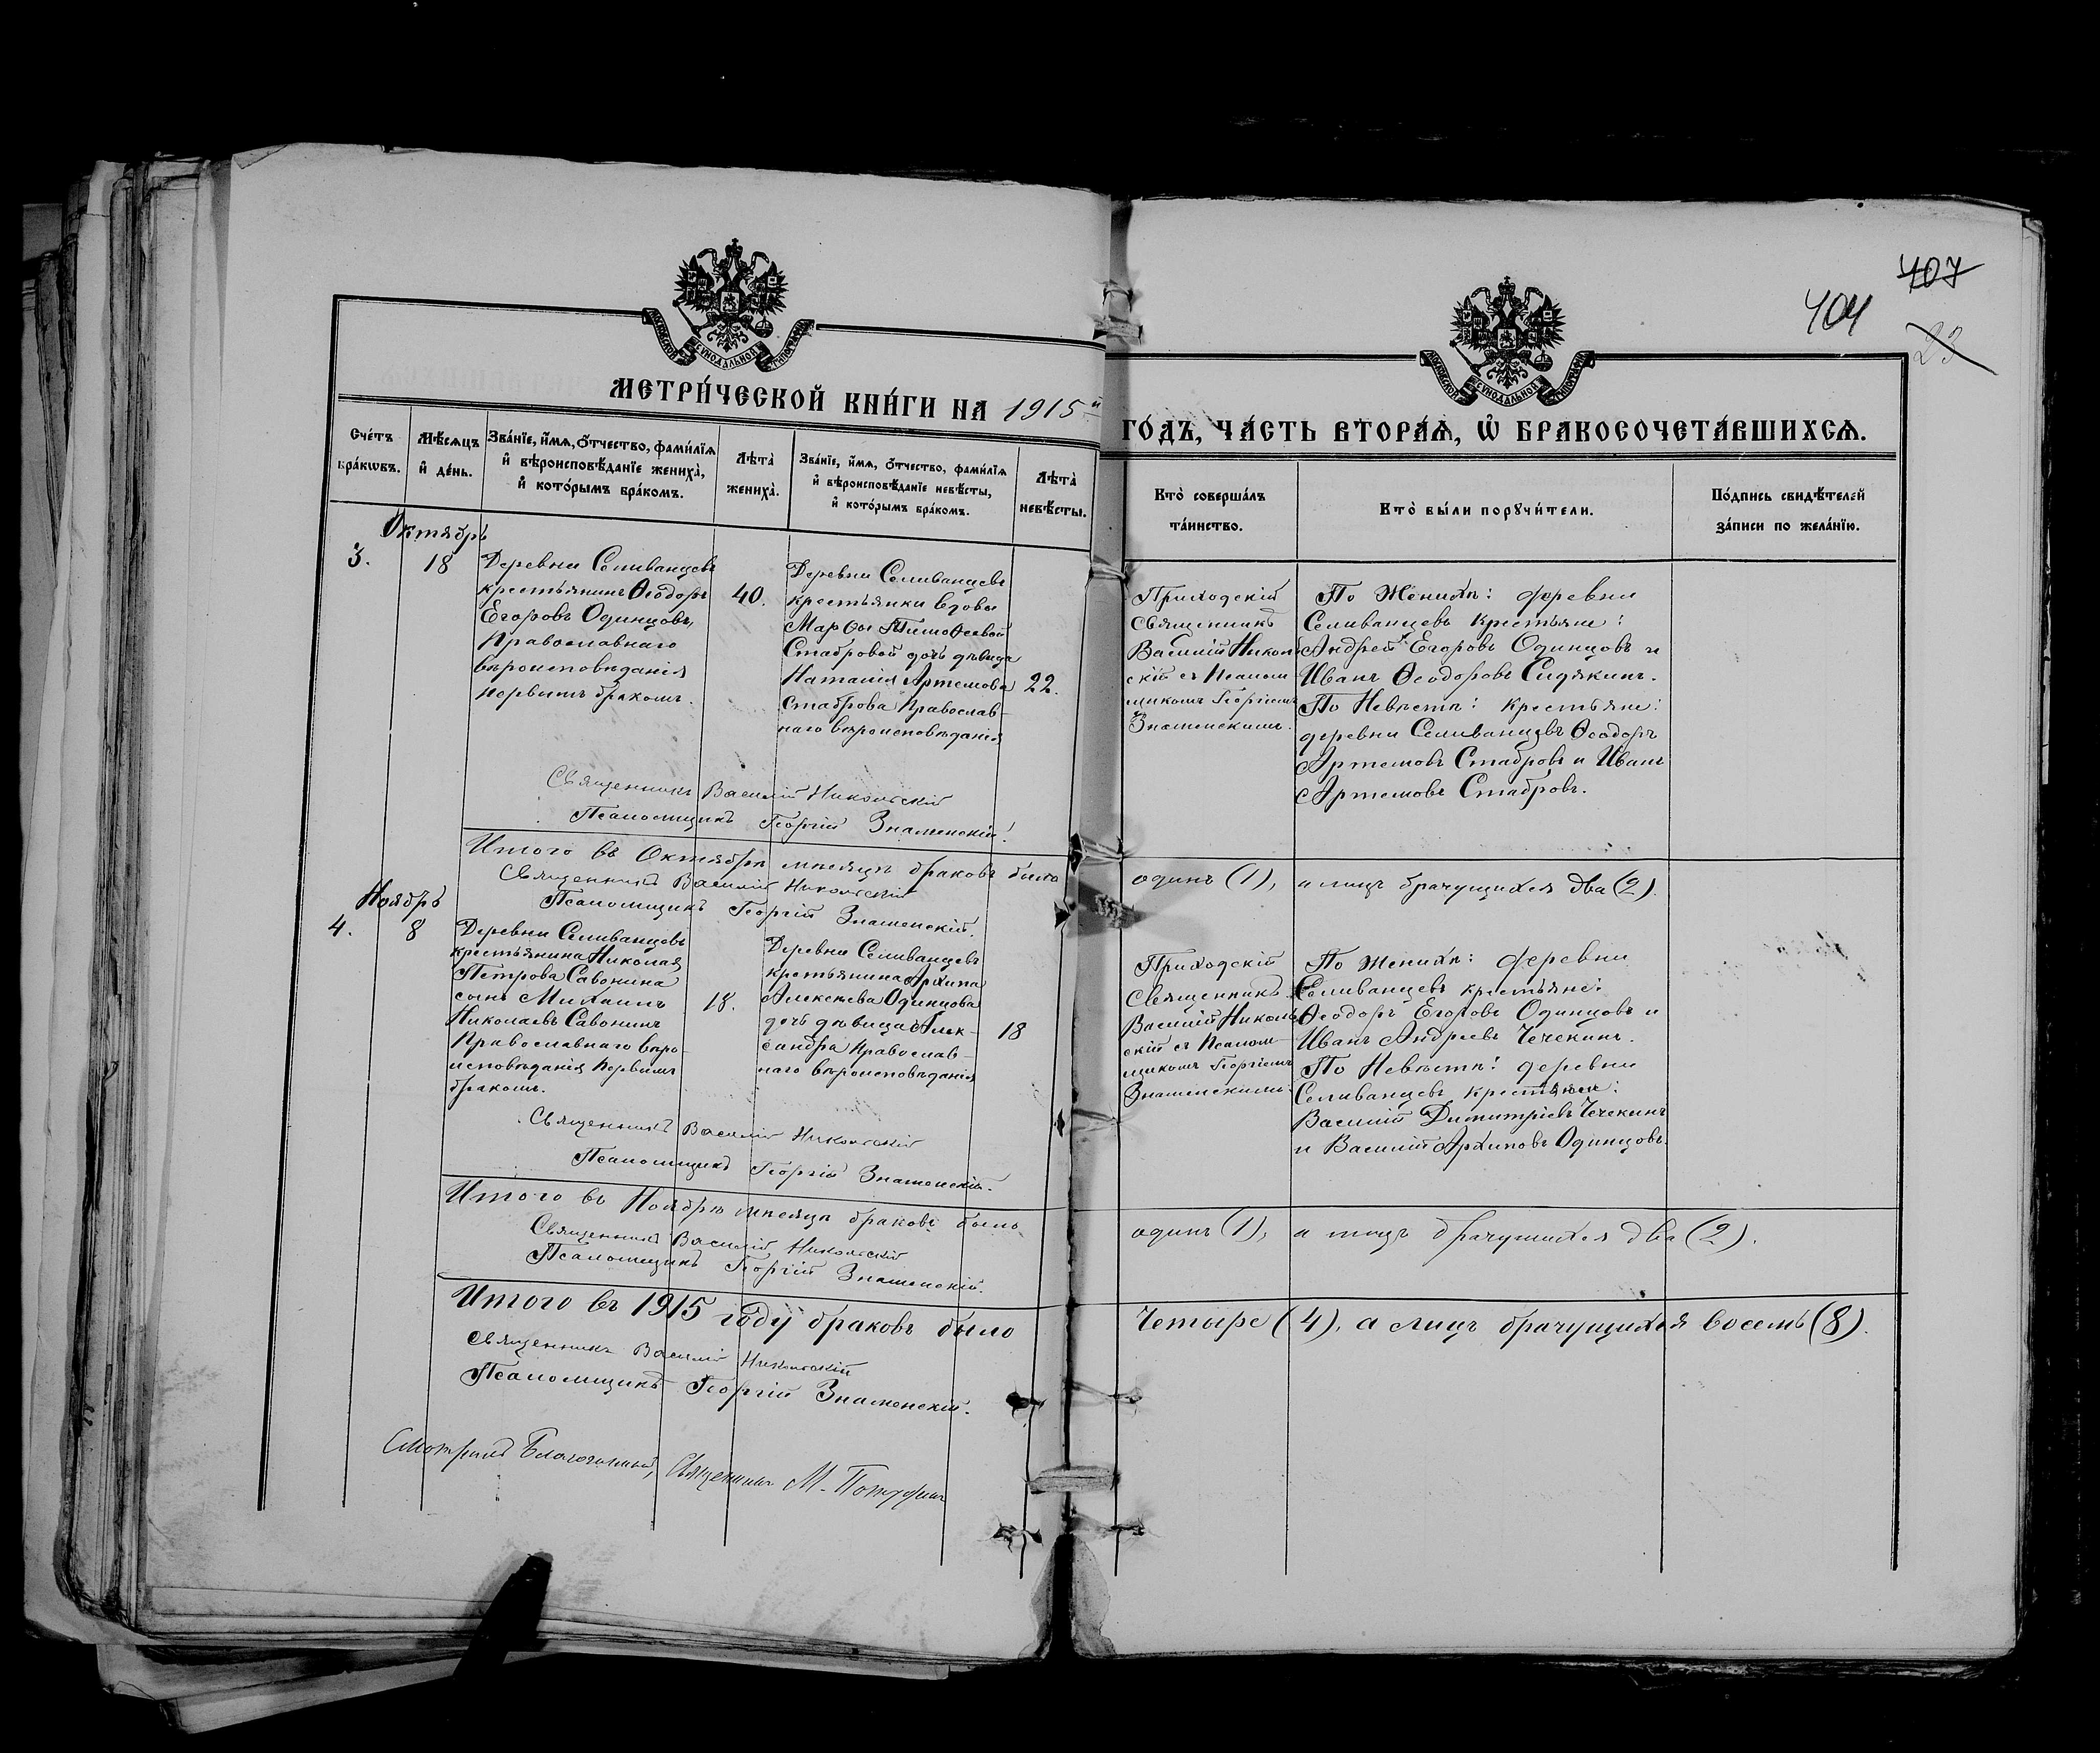 407
404
23
МОСКОВСКОЙ СУНОДАЛЬНОЙ ТИПОГРАФІИ
МОСКОВСКОЙ СУНОДАЛЬНОЙ ТИПОГРАФІИ
МЕТРИ́ЧЕСКОЙ КНИ́ГИ НА 1915й
ГО́ДЪ, ЧА́СТЬ ВТОРА́Ѧ, Ѽ БРАКОСОЧЕТА́ВШИХСѦ.
Сче́тъ
бра́кѡвъ.
Мѣ́сѧцъ
и҆ де́нь.
Зва́нїе, и҆́мѧ, ѻ҆́тчество, фами́лїѧ
и҆ вѣроисповѣ́данїе жениха̀,
и҆ кото́рымъ бра́комъ.
Лѣ́та
жениха̀.
Зва́нїе, и҆́мѧ, ѻ҆́тчество, фами́лїѧ
и҆ вѣроисповѣ́данїе невѣ́сты,
и҆ кото́рымъ бра́комъ.
Лѣ́та
невѣ́сты.
Кто̀ соверша́лъ
та́инство.
Кто̀ бы́ли порꙋчи́тели.
По́дпись свидѣ́телей
за́писи по жела́нїю.
Октябрь
3.
18
Деревни Селиванцевъ
крестьянинъ Ѳеодоръ
Егоровъ Одинцовъ,
Православнаго
вѣроисповѣданія
первымъ бракомъ.
40.
Деревни Селиванцевъ
крестьянки вдовы
Марѳы Тимоѳеевой
Стабровой дочь дѣвица
Наталія Артемова
Стаброва Православ-
наго вѣроисповѣданія
22.
Приходскій
Священникъ
Василій Николь
скій съ Псалом
щикомъ Георгіемъ
Знаменскимъ.
По Женихѣ: деревни
Селиванцевъ крестьяне:
Андрей Егоровъ Одинцовъ и
Иванъ Ѳеодоровъ Сидякинъ.
По Невѣстѣ: крестьяне:
деревни Селиванцевъ Ѳеодоръ
Артемовъ Стабровъ и Иванъ
Артемовъ Стабровъ.
Священникъ Василій Никольскій
Псаломщикъ Георгій Знаменскій.
Итого въ Октябрѣ мѣсяцѣ браковъ было
одинъ (1), а лицъ брачущихся два (2).
Священникъ Василій Никольскій
Псаломщикъ Георгій Знаменскій.
Ноябрь
4.
8
Деревни Селиванцевъ
крестьянина Николая
Петрова Савонина
сынъ Михаилъ
Николаевъ Савонинъ
Православнаго вѣро-
исповѣданія первымъ
бракомъ.
18.
Деревни Селиванцевъ
крестьянина Архипа
Алексѣева Одинцова
дочь дѣвица Алек-
сандра Православ-
наго вѣроисповѣданія
18
Приходскій
Священникъ
Василій Николь
скій съ Псалом-
щикомъ Георгіемъ
Знаменскимъ.
По Женихѣ: деревни
Селиванцевъ крестьяне:
Ѳеодоръ Егоровъ Одинцовъ и
Иванъ Андреевъ Чечекинъ.
По Невѣстѣ: деревни
Селиванцевъ крестьяне:
Василій Димитріевъ Чечекинъ
и Василій Архиповъ Одинцовъ.
Священникъ Василій Никольскій
Псаломщикъ Георгій Знаменскій.
Итого въ Ноябрѣ мѣсяцѣ браковъ было
одинъ (1), а лицъ брачущихся два (2).
Священникъ Василій Никольскій
Псаломщикъ Георгій Знаменскій.
Итого въ 1915 году браковъ было
Четыре (4), а лицъ брачущихся восемь (8).
Священникъ Василій Никольскій
Псаломщикъ Георгій Знаменскій.
Смотрѣлъ Благочинный, Священникъ М.